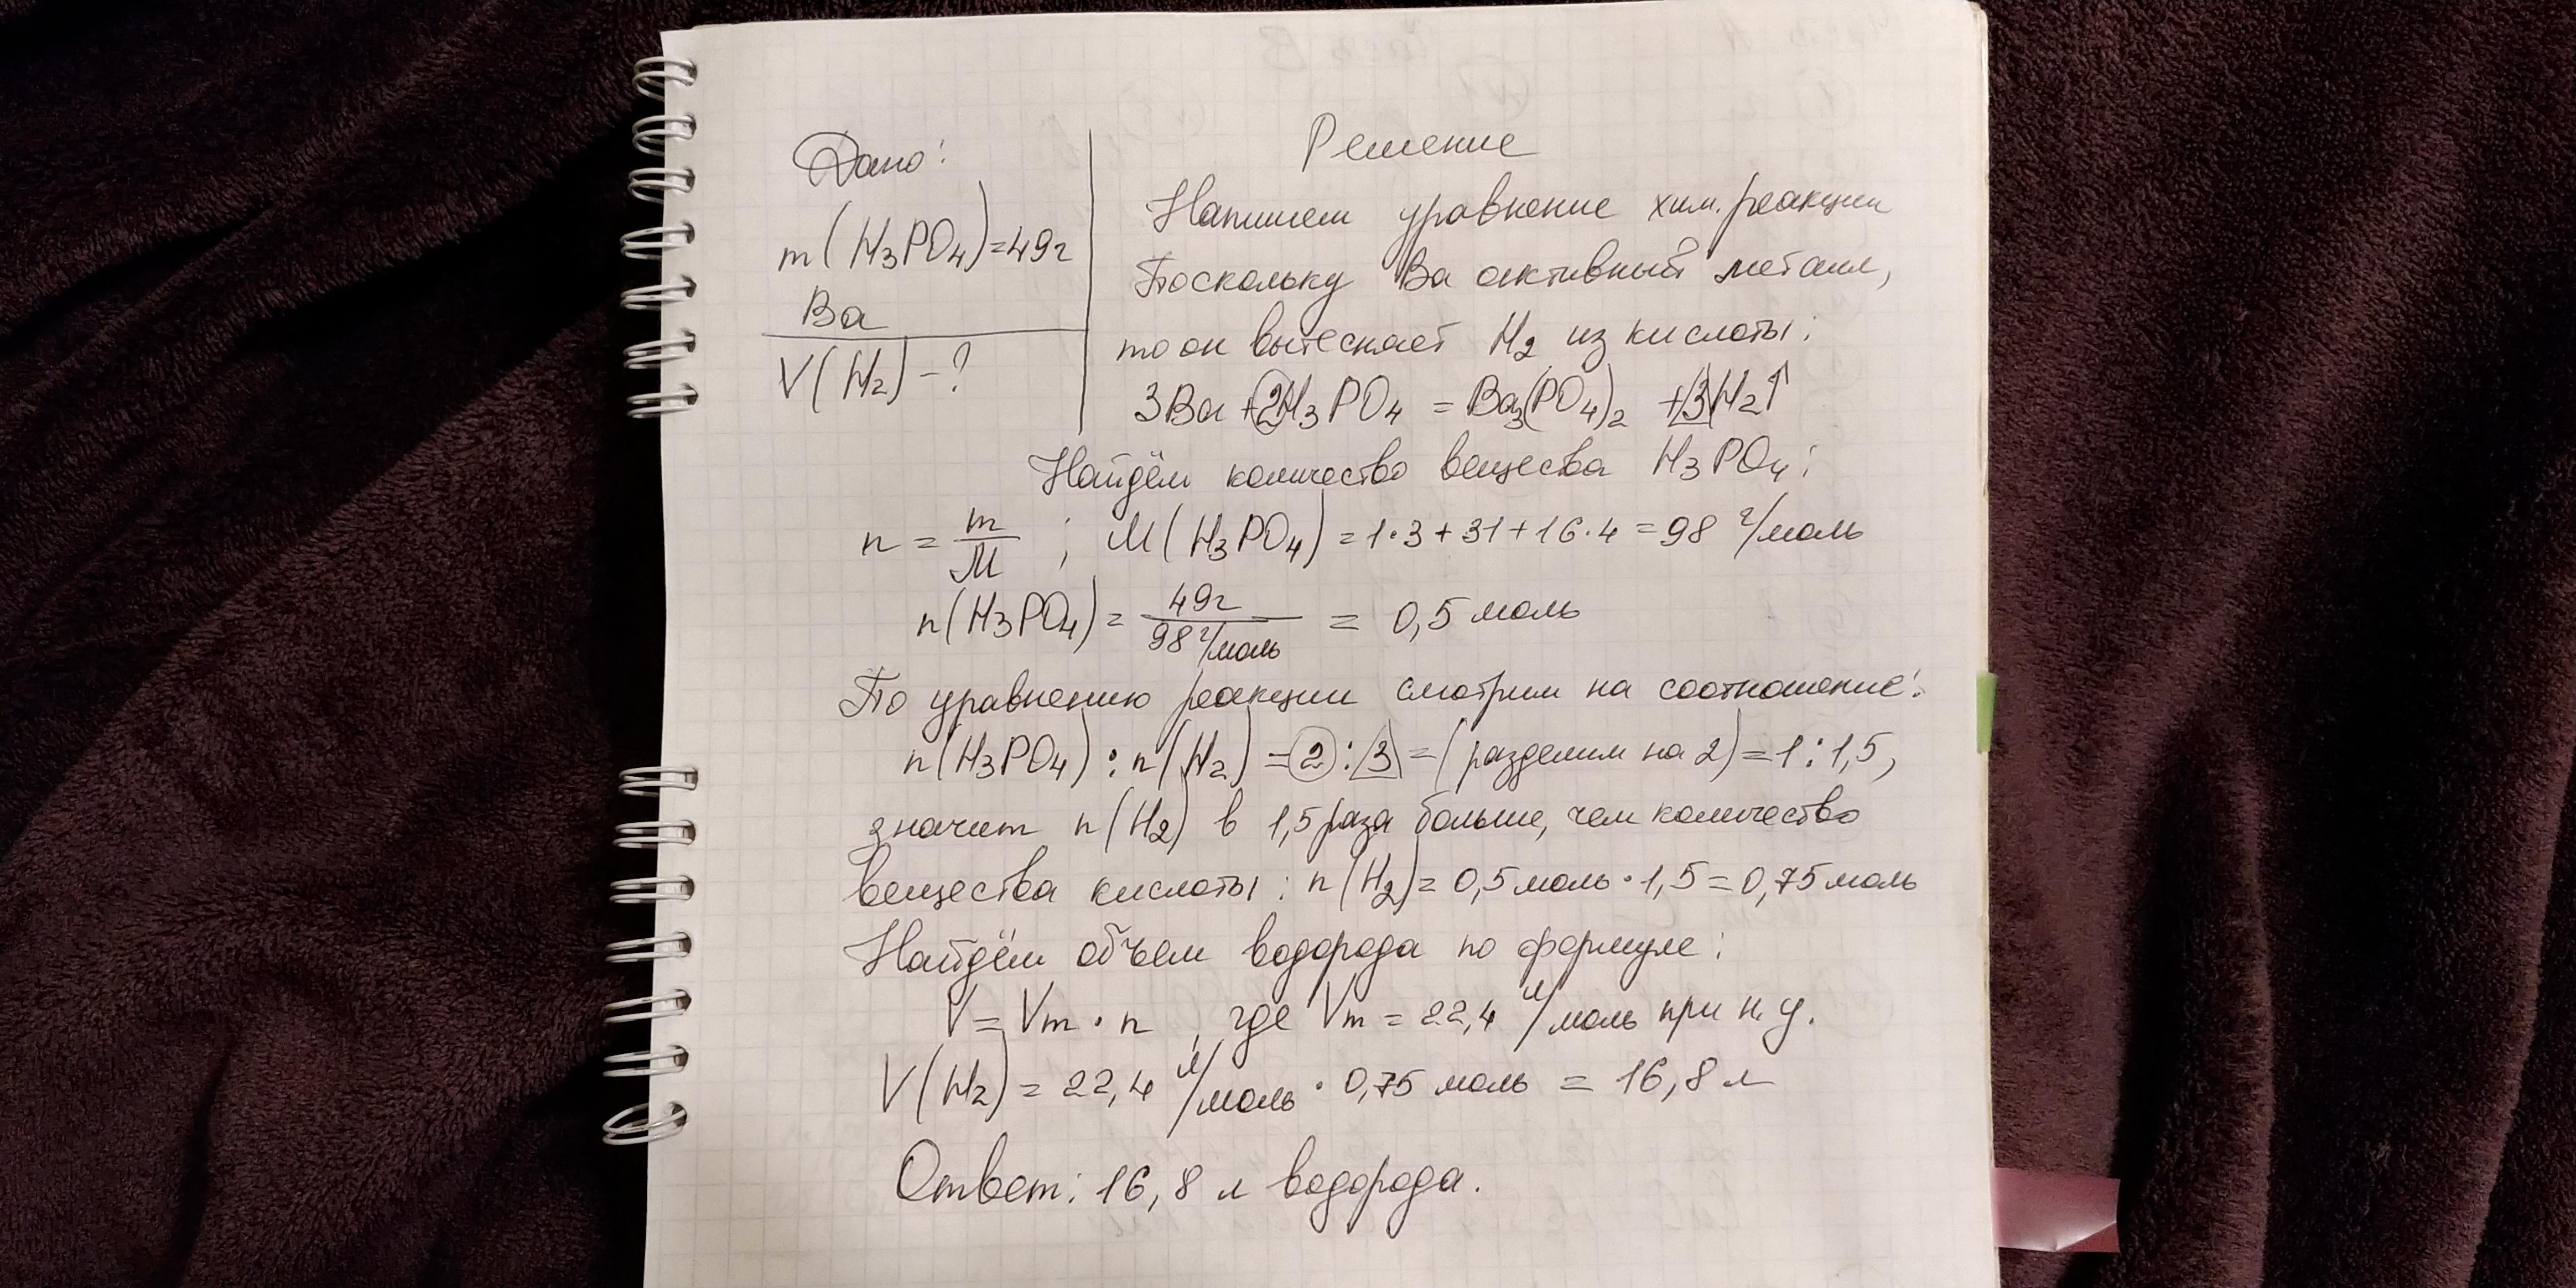 Дано:
m(H₃PO₄)=49г
Ba
V(H₂) - ?
Решение
Напишем уравнение хим. реакции
Поскольку Ba активный металл,
то он вытесняет H₂ из кислоты:
3Ba + 2H₃PO₄ = Ba₃(PO₄)₂ + 3H₂↑
Найдём количество вещества H₃PO₄:
n = m/M ; M(H₃PO₄) = 1·3+31+16·4 = 98 г/моль
n(H₃PO₄) = 49г / 98 г/моль = 0,5 моль
По уравнению реакции смотрим на соотношение:
n(H₃PO₄) : n(H₂) = 2 : 3 = (разделим на 2) = 1 : 1,5,
значит n(H₂) в 1,5 раза больше, чем количество
вещества кислоты : n(H₂) = 0,5 моль · 1,5 = 0,75 моль
Найдём объём водорода по формуле :
V = Vm · n , где Vm = 22,4 л/моль при н. у.
V(H₂) = 22,4 л/моль · 0,75 моль = 16,8 л
Ответ: 16,8 л водорода.